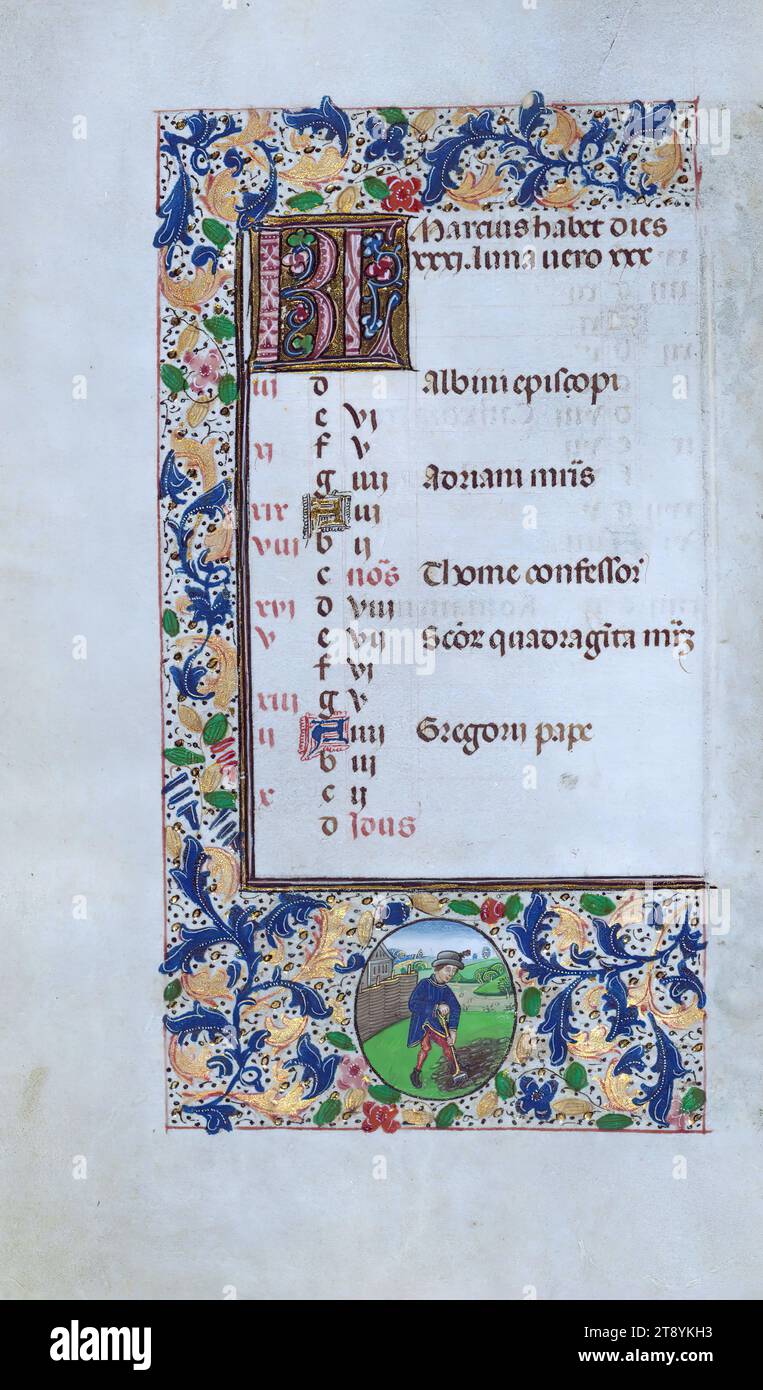 KL Marcius habet dies
xxxj. luna vero xxx
iii d Albini episcopi
e vj
xj f v
g iiij Adriani mr̄is
xix A iij
viij b ij
c nōs Thome confessor
xvj d viij
v e vij Scōr quadragīta mr̄ꝫ
f vj
xiij g v
ij A iiij Gregorii pape
b iij
x c ij
d Jdus
alamy
Image ID: 2T8YKH3
www.alamy.com